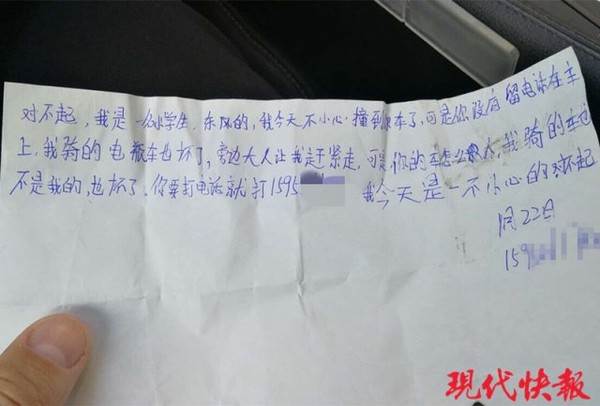 对不起，我是一名小学生，东风的，我今天不小心撞到你车了，可是你没有留电话在车
上，我骑的电瓶车也坏了，旁边大人让我赶紧走，可是你的车怎么办，我骑的车也
不是我的，也坏了，你要打电话就打1595
我今天是一不小心的对不起
1月22日
159
现代快報